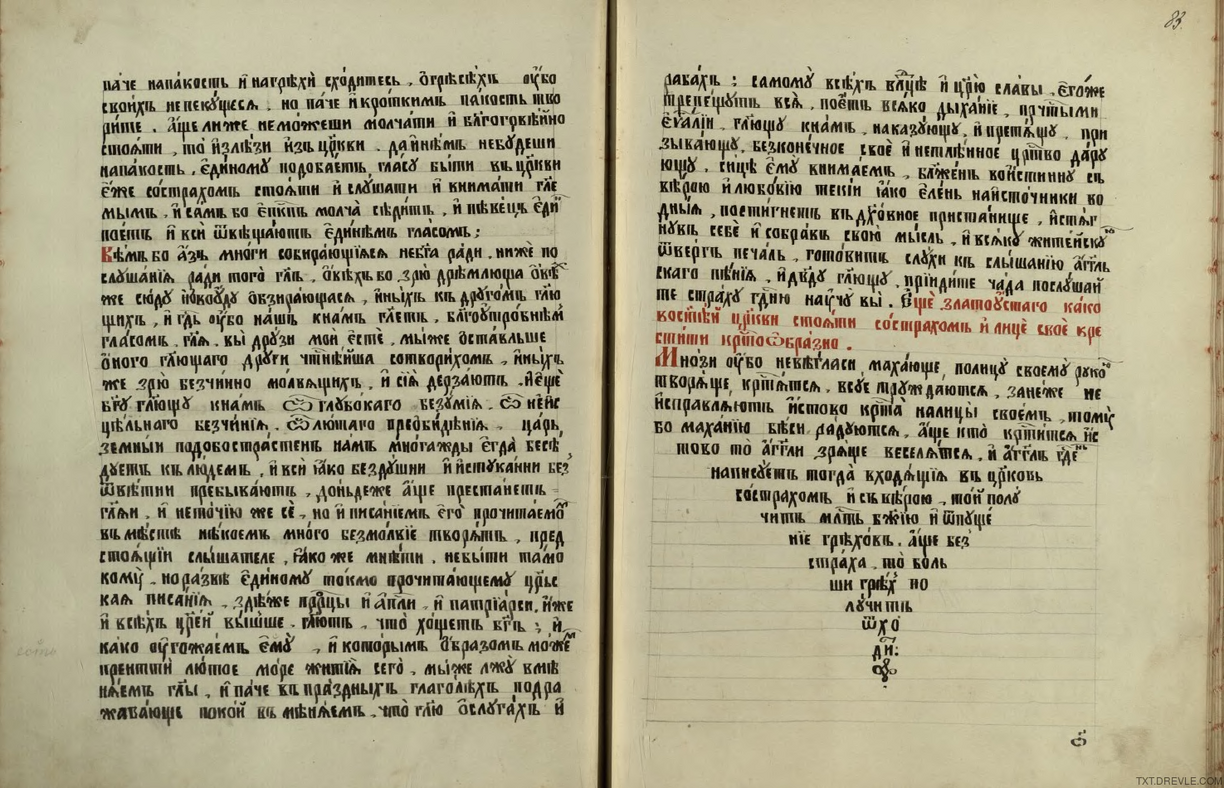 па́че напа́кость и҆ нагрѣхѝ сходитесь, ѻ҆ грѣсѣ́хъ оу҆бо
свои́хъ непекꙋ́щеся. но па́че и҆ кроткимъ па́кость тво
рите. а҆́ще ли же неможеши молчати и҆ бл҃гоговѣ́йно
стоѧти, то и҆зле́зи и҆зъ цр҃кви. да и҆нѣ́мъ небꙋдеши
напа́кость. є҆ди́номꙋ подоба́етъ гла́сꙋ быти въ цр҃кви
є҆́же состра́хомъ стоѧ́ти и҆ слꙋ́шати и҆ внима́ти гл҃е
мымъ, и҆ самъ бо є҆пⷭкпъ молча̀ сѣди́тъ, и҆ пѣве́цъ є҆ди́нъ
пое́тъ и҆ вси̑ ѿвѣща́ютъ є҆ди́нѣмъ гла́сомъ;
Вѣ́мъ бо а҆́зъ мно́ги собира́ющїяся не бг҃а ра́ди. ниже по
слꙋша́нїя ра́ди того̀ гл҃ъ, ѻ҆вѣ́хъ бо зрю̀ дрѣ́млюща ѻ҆вѣ́
же сю́дꙋ и҆ ѻ҆вꙋ́дꙋ ѻ҆бзира́ющася, и҆ны́хъ къ дрꙋго́мъ гл҃ю
щихъ, и҆ гдⷭ҇ь оу҆́бо нашъ къ на́мъ гл҃етъ, бл҃гоꙋтро́бнымъ
гла́сомъ. гл҃я. вы̀ дрꙋ́зи мои̑ є҆стѐ, мы́же ѡ҆ста́вльше
ѻ҆́ного гл҃ющаго дрꙋ́ги чтⷭ҇нѣ́йша сотвори́хомъ, и҆ны́хъ
же зрю̀ безчи́нно мо́лвящихъ, и҆ сїѧ̑ дерза́ютъ. и҆ є҆щѐ
бг҃ꙋ гл҃ющꙋ къ на́мъ ѽ глꙋбо́каго безꙋ́мїя. ѽ неис
цѣ́льнаго безчи́нїя. ѽ лю́таго преѻби́дѣнїя. ца́рь
земны́и подобостра́стенъ на́мъ мно́гажды є҆гда̀ бесѣ́
дꙋетъ къ лю́демъ, и҆ вси̑ ꙗ҆́ко бездꙋ́шни и҆ и҆стꙋка́нни без
ѿвѣ́тни пребыва́ютъ, до́ньдеже а҆́ще преста́нетъ
гл҃ѧи. и҆ нето́чїю же сѐ, но и҆ писа́нїемъ є҆гѡ̀ прочита́емо
въ мѣ́стѣ нѣ́коемъ мно́го безмо́лвїе творѧ́тъ, пред
стоѧ́щїи слы́шателе, ꙗ҆́коже мнѣ́ти, небы́ти та́мо
комꙋ̀. но ра́звѣ є҆ди́номꙋ то́кмо прочита́ющемꙋ цр҃ьс
кая писа́нїя. здѣ́же прⷪ҇ро́цы и҆ а҆пⷭ҇ли. и҆ патрїа́рси, и҆́же
и҆ всѣ́хъ цр҃ей вы́шше. гл҃ютъ. что̀ хо́щетъ бг҃ъ; и҆
ка́ко оу҆гожа́емъ є҆мꙋ̀, и҆ кото́рымъ ѻ҆́бразомъ мо́же
преитти́ лю́тое мо́ре житїѧ̀ сего̀, мы́же лжꙋ̀ вмѣ
нѧ́емъ гл҃ы, и҆ па́че въ пра́здныхъ глаго́лѣхъ подра
жа́вающе поко́й въмѣнѧ́емъ. что̀ гл҃ю ѡ҆ слꙋга́хъ и҆
раба́хъ; самомꙋ̀ всѣ́хъ влⷣцѣ и҆ цр҃ю̀ сла́вы, є҆го́же
трепе́щꙋтъ всѧ̀, пое́тъ всѧ́ко дыха́нїе, прчⷭ҇тыми
є҆ѵⷢ҇а́лїи, гл҃ющꙋ къ на́мъ, наказꙋ́ющꙋ, и҆ претѧ́щꙋ, при
зыва́ющꙋ, безконе́чное своѐ и҆ нетлѣ́нное црⷭ҇тво да́рꙋ
ющꙋ. си́це є҆мꙋ̀ внима́емъ, бл҃же́нъ вои́стиннꙋ съ
вѣ́рою и҆ любо́вїю теки́и ꙗ҆́ко є҆ле́нь на и҆сто́чники во
дны́я, пости́гнетъ въ дх҃о́вное приста́нище, и҆ стѧг
нꙋ́въ себѐ и҆ собра́въ свою̀ мы́сль, и҆ всѧ́кꙋ жите́йскꙋю
ѿве́ргъ печа́ль, гото́витъ слꙋ́хи къ слы́шанїю а҆́гг҃ль
скаго пѣ́нїя, и҆ дв҃дꙋ гл҃ющꙋ, прїиди́те ча́да послꙋ́шай
те стра́хꙋ гдⷭ҇ню наꙋчꙋ̀ вы̀. Є҆щѐ златоꙋ́стаго ка́ко
во ст҃ѣ́й цр҃кви стоѧ́ти состра́хомъ и҆ лицѐ своѐ кре
сти́ти крⷭ҇тоѻбра́зно.
Мно́зи оу҆́бо невѣ́гласи маха́юще, по лицꙋ̀ своемꙋ̀ рꙋко́ю
творѧ́ще, крⷭ҇тѧ́тся, всꙋ́е трꙋжда́ются, зане́же не
и҆справлѧ́ютъ и҆́стово крⷭ҇та̀ на лицы̀ своемъ, томꙋ̀
бо маха́нїю бѣ́си ра́дꙋются, а҆́ще кто̀ крⷭ҇титися и҆с
тово то̀ а҆́гг҃ли зрѧ́ще веселѧ́тся. и҆ а҆́гг҃лъ гдⷭ҇нь
написꙋ́етъ тогда̀ входѧ́щїя въ цр҃ковь
состра́хомъ и҆ съ вѣ́рою, то́й полꙋ
чи́тъ млⷭ҇ть бж҃їю и҆ ѿпꙋще́
нїе грѣхо́въ. а҆́ще без
стра́ха, то̀ бо́ль
ши грѣ́хъ по
лꙋчи́тъ
ѿхо
дѧ̀:
83.
TXT.DREVLE.COM